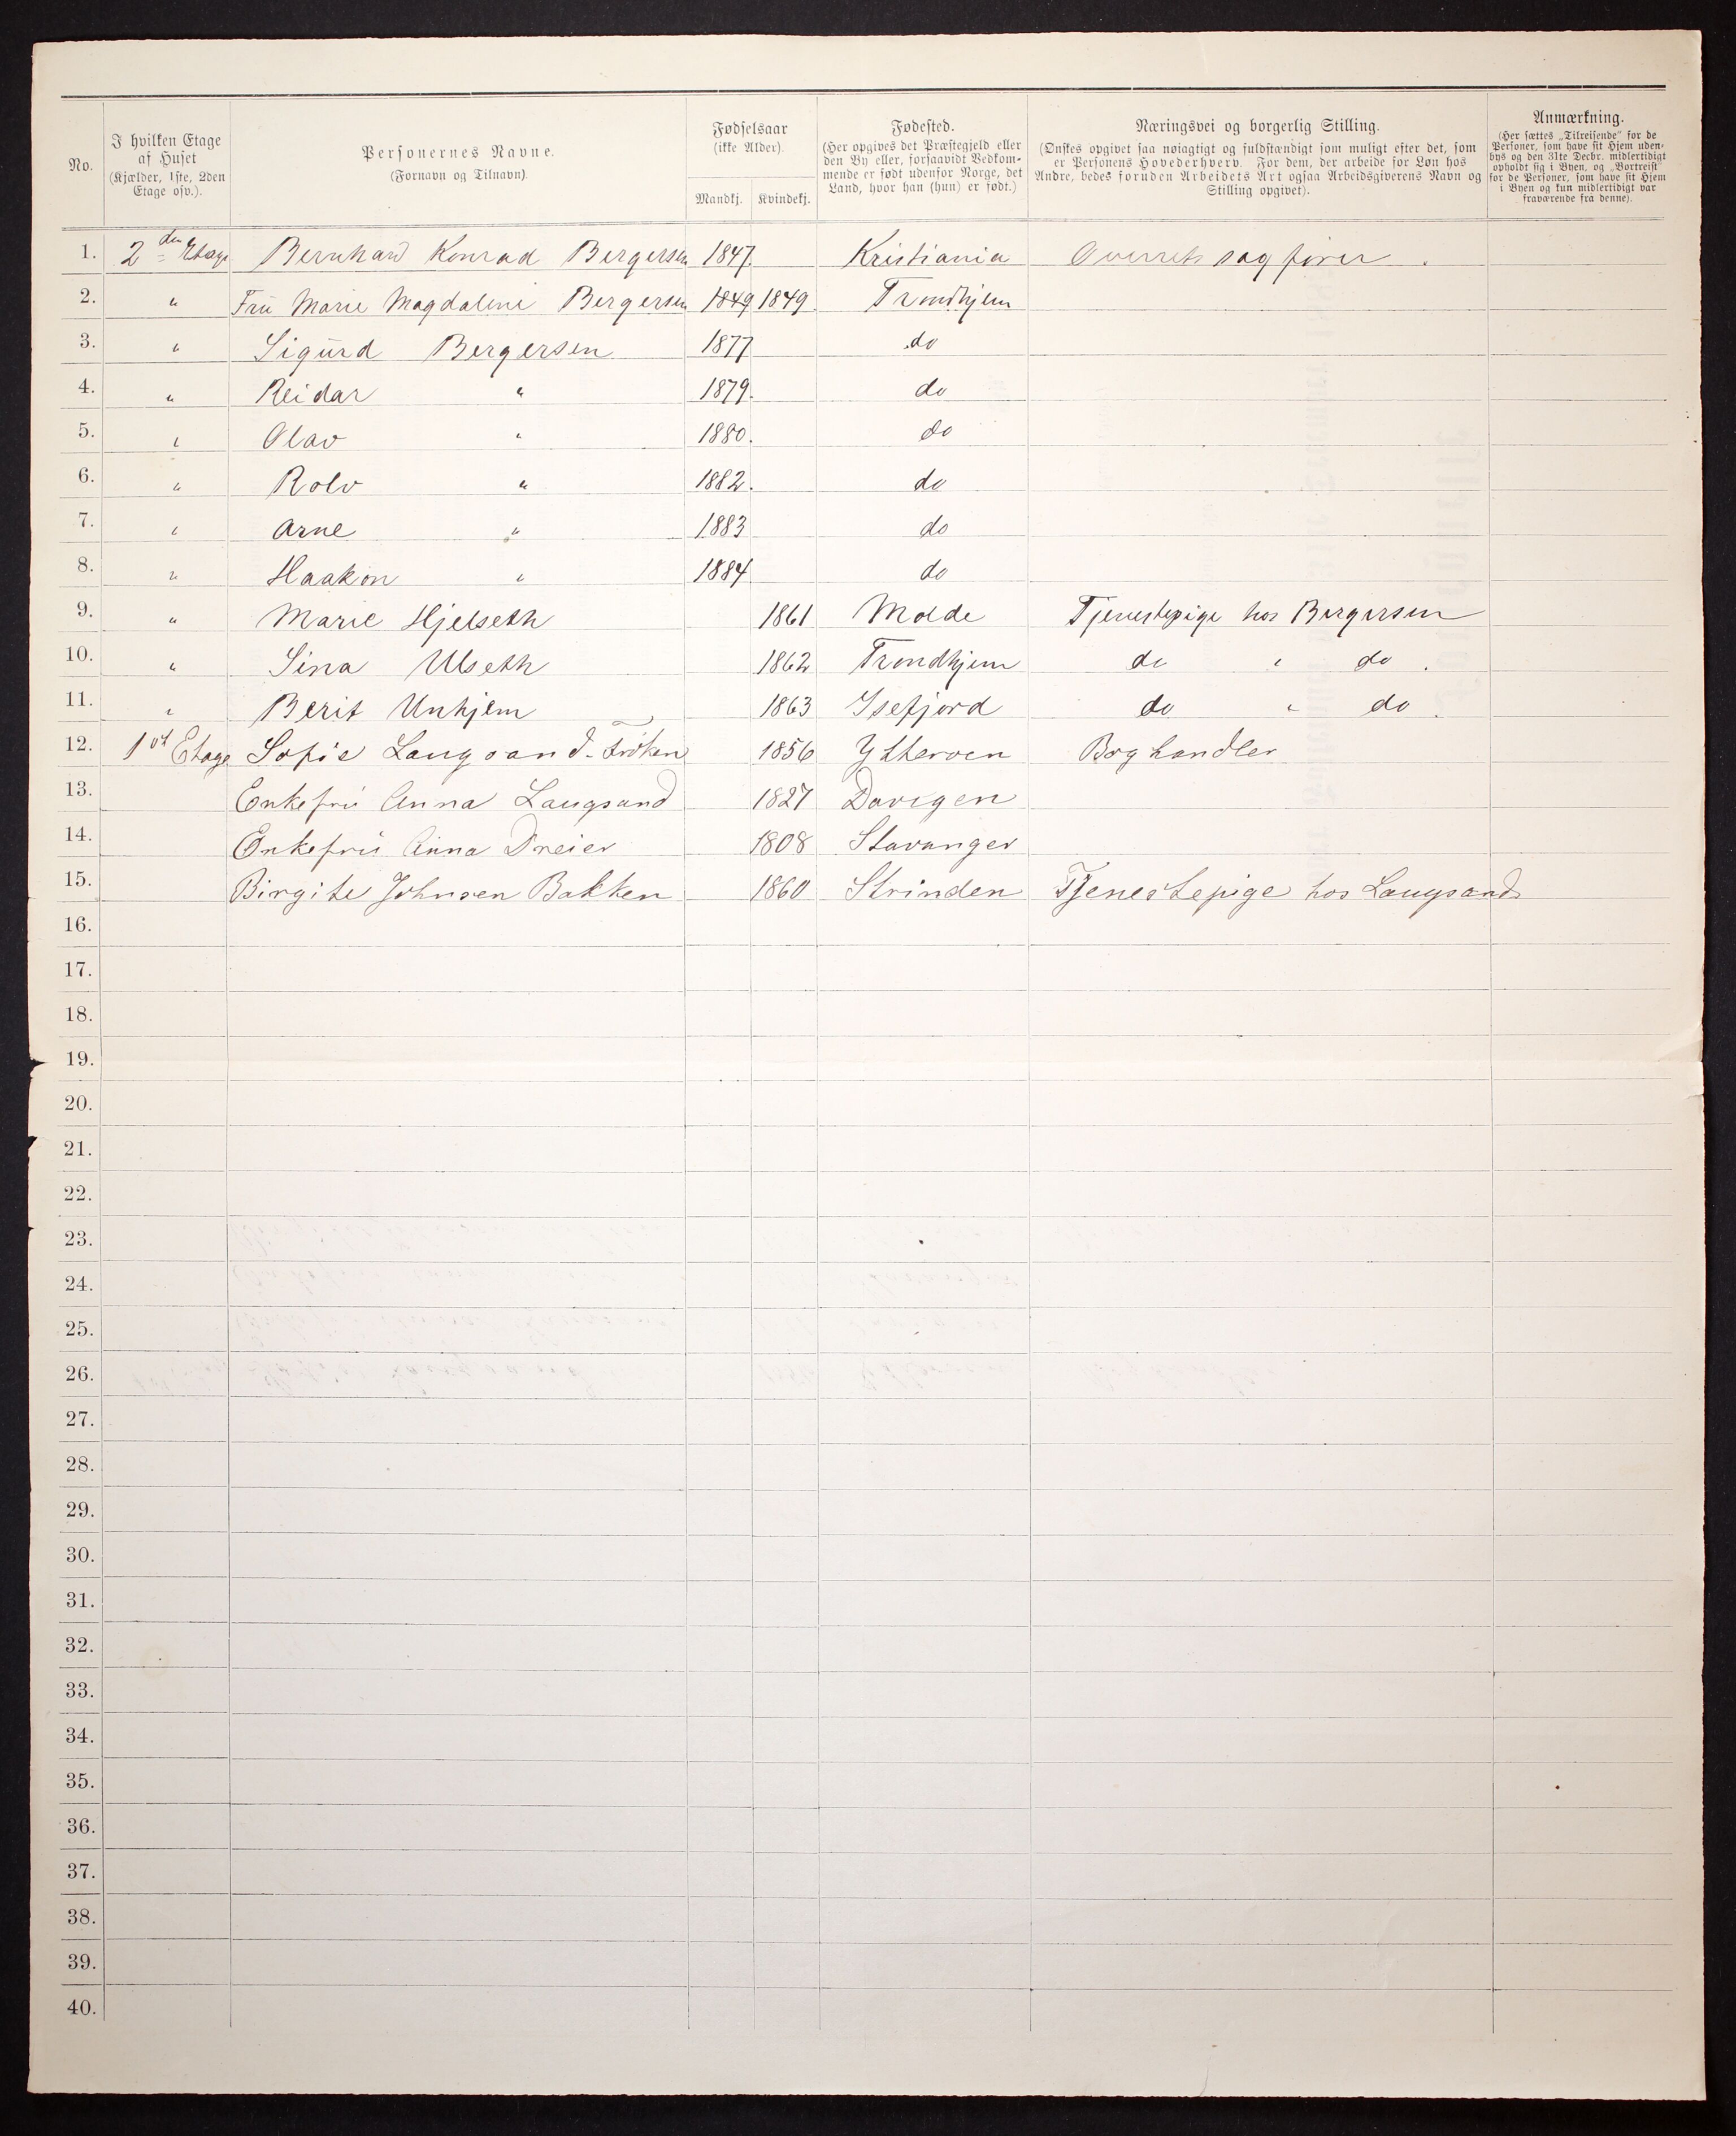 No.
I hvilken Etage
af Huset
(Kjælder, 1ste, 2den
Etage osv.).
Personernes Navne.
(Fornavn og Tilnavn).
Fødselsaar
(ikke Alder).
Mandkj. Kvindekj.
Fødested.
(Her opgives det Præstegjeld eller
den By eller, forsaavidt Vedkom-
mende er født udenfor Norge, det
Land, hvor han (hun) er født.)
Næringsvei og borgerlig Stilling.
(Ønskes opgivet saa nøiagtigt og fuldstændigt som muligt efter det, som
er Personens Hovederhverv. For dem, der arbeide for Løn hos
Andre, bedes foruden Arbeidets Art ogsaa Arbeidsgiverens Navn og
Stilling opgivet).
Anmærkning.
(Her sættes „Tilreisende“ for de
Personer, som have sit Hjem uden-
bys og den 31te Decbr. midlertidigt
opholdt sig i Byen, og „Bortreist“
for de Personer, som have sit Hjem
i Byen og kun midlertidigt var
fraværende fra denne).
1. 2den Etage Bernhard Konrad Bergersen 1847 Kristiania Overretssagfører.
2. " Fru Marie Magdalene Bergersen 1849 1849 Trondhjem
3. " Sigurd Bergersen 1877 do
4. " Reidar " 1879. do
5. " Olav " 1880. do
6. " Rolv " 1882. do
7. " Arne " 1883 do
8. " Haakon " 1884 do
9. " Marie Hjelseth 1861 Molde Tjenestepige hos Bergersen
10. " Sina Ulseth 1862 Trondhjem do " do.
11. " Berit Unhjem 1863 Isefjord do " do.
12. 1st Etage Sofie Laugsand-Frøken 1856 Ytterøen Boghandler
13. Enkefru Anna Laugsand 1827 Davigen
14. Enkefru Anna Dreier 1808 Stavanger
15. Birgite Johnsen Bakken 1860 Strinden Tjenestepige hos Laugsand
16.
17.
18.
19.
20.
21.
22.
23.
24.
25.
26.
27.
28.
29.
30.
31.
32.
33.
34.
35.
36.
37.
38.
39.
40.